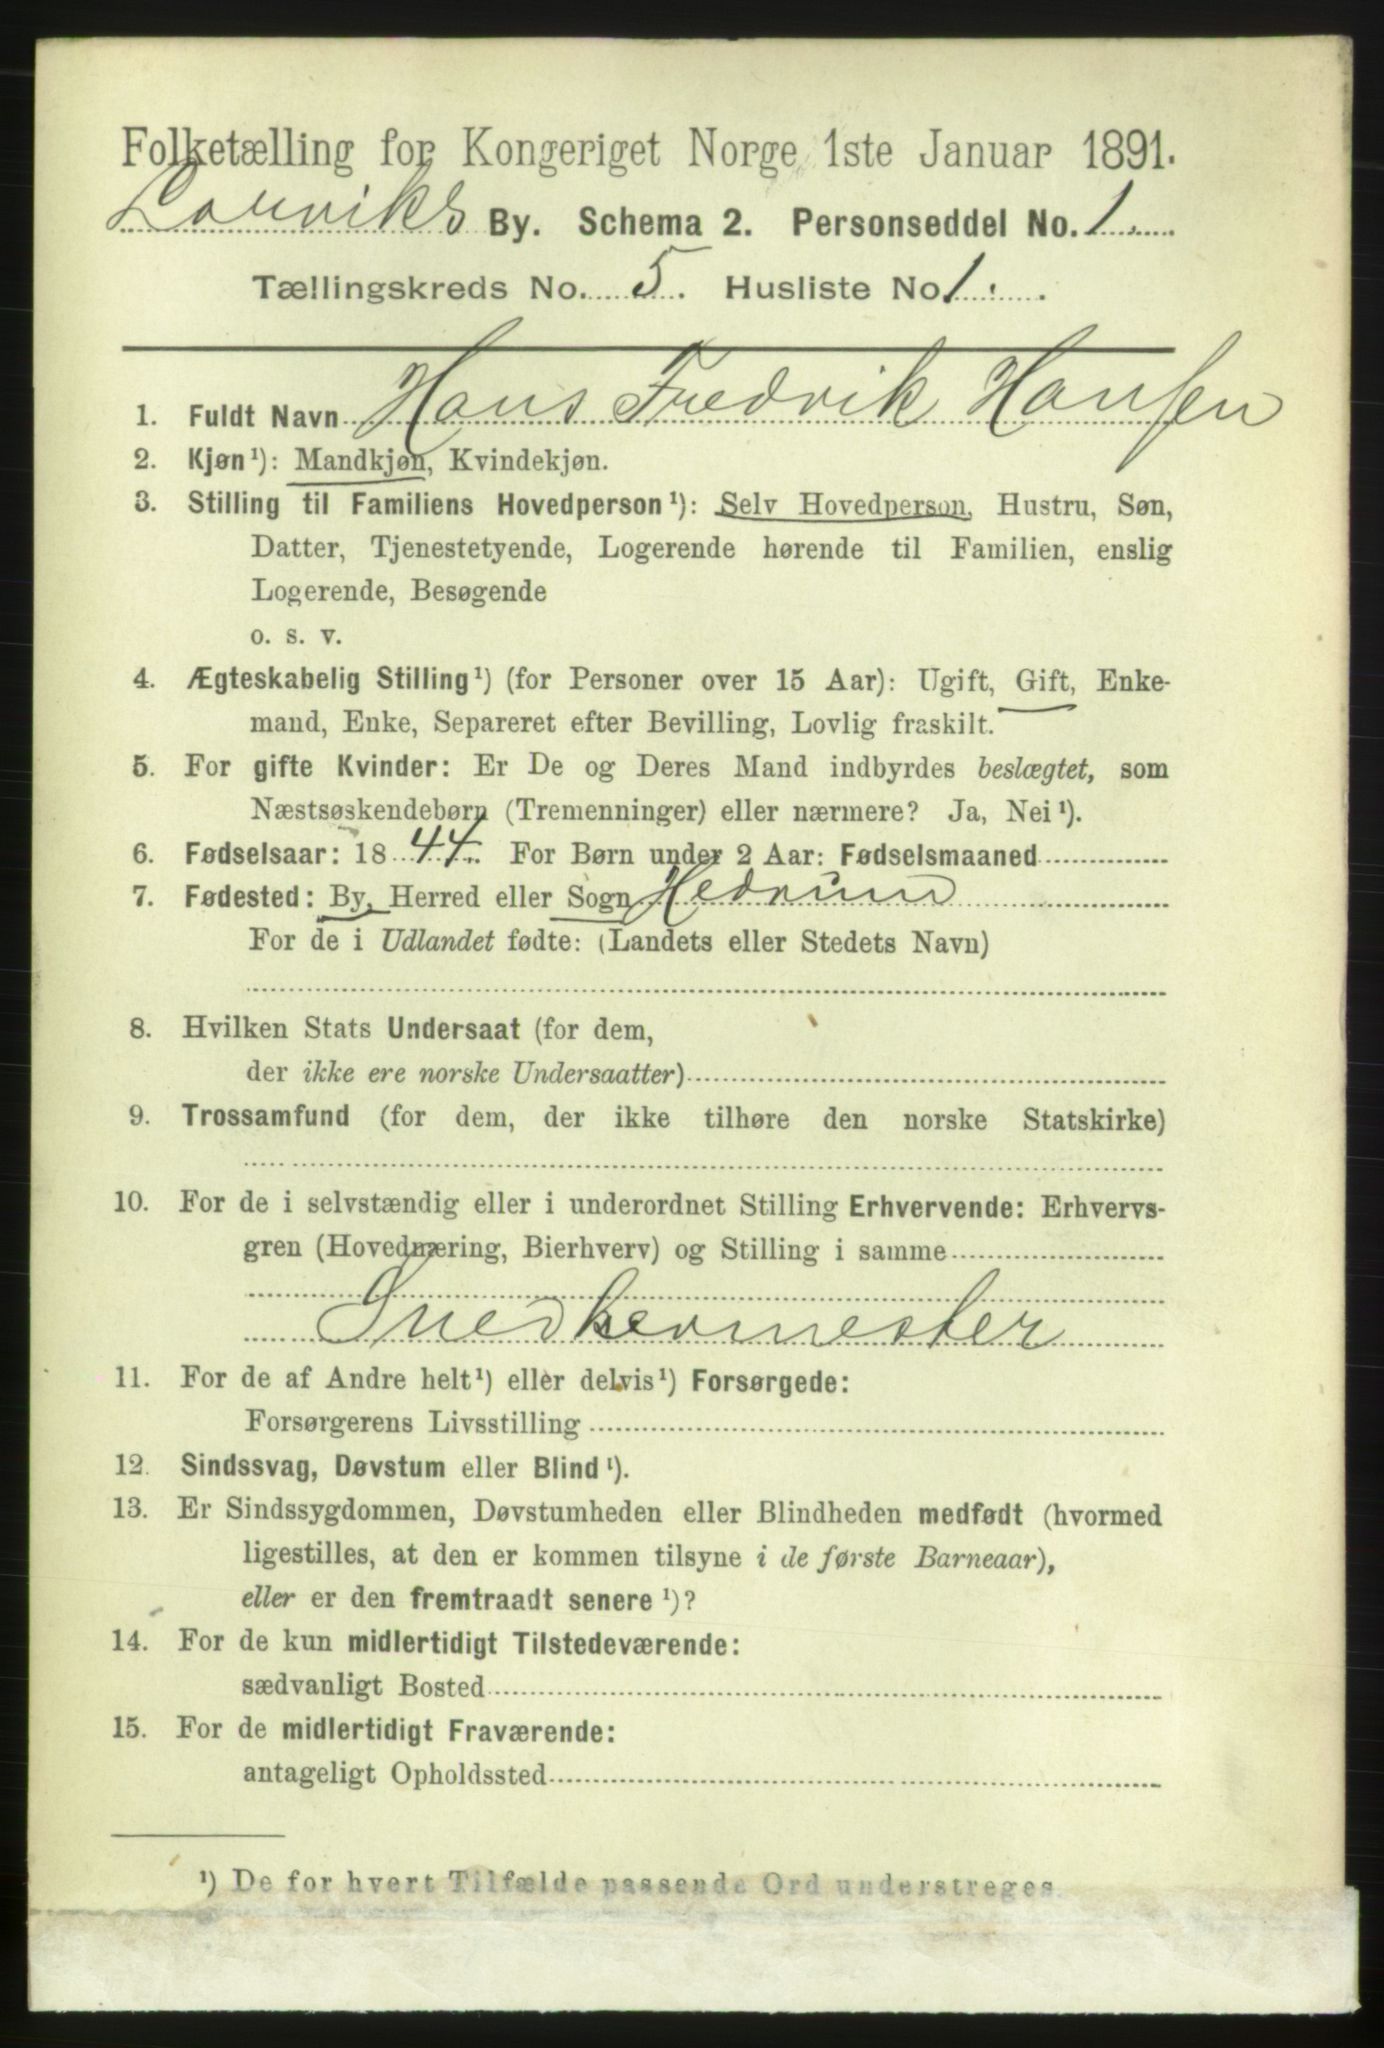 Folketælling for Kongeriget Norge 1ste Januar 1891.
Laurviks By. Schema 2. Personseddel No. 1.
Tællingskreds No. 5. Husliste No 1.
1. Fuldt Navn Hans Fredrik Hansen
2. Kjøn¹): Mandkjøn, Kvindekjøn.
3. Stilling til Familiens Hovedperson¹): Selv Hovedperson, Hustru, Søn,
Datter, Tjenestetyende, Logerende hørende til Familien, enslig
Logerende, Besøgende
o. s. v.
4. Ægteskabelig Stilling¹) (for Personer over 15 Aar): Ugift, Gift, Enke-
mand, Enke, Separeret efter Bevilling, Lovlig fraskilt.
5. For gifte Kvinder: Er De og Deres Mand indbyrdes beslægtet, som
Næstsøskendebørn (Tremenninger) eller nærmere? Ja, Nei¹).
6. Fødselsaar: 1844. For Børn under 2 Aar: Fødselsmaaned
7. Fødested: By, Herred eller Sogn Hedrum
For de i Udlandet fødte: (Landets eller Stedets Navn)
8. Hvilken Stats Undersaat (for dem,
der ikke ere norske Undersaatter)
9. Trossamfund (for dem, der ikke tilhøre den norske Statskirke)
10. For de i selvstændig eller i underordnet Stilling Erhvervende: Erhvervs-
gren (Hovednæring, Bierhverv) og Stilling i samme
Snedkermester
11. For de af Andre helt¹) eller delvis¹) Forsørgede:
Forsørgerens Livsstilling
12. Sindssvag, Døvstum eller Blind¹).
13. Er Sindssygdommen, Døvstumheden eller Blindheden medfødt (hvormed
ligestilles, at den er kommen tilsyne i de første Barneaar),
eller er den fremtraadt senere¹)?
14. For de kun midlertidigt Tilstedeværende:
sædvanligt Bosted
15. For de midlertidigt Fraværende:
antageligt Opholdssted
¹) De for hvert Tilfælde passende Ord understreges.